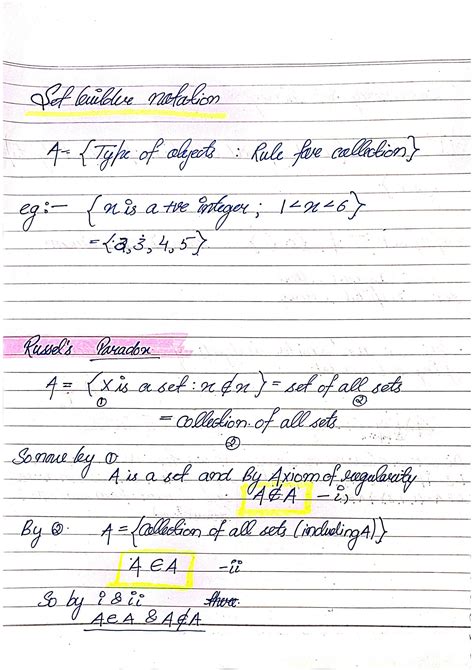 Set builder notation
A = {Type of objects : Rule for collection}
eg:- {n is a +ve integer ; 1<n<6}
= {2, 3, 4, 5}
Russel's Paradox
A = {X is a set : x ∉ x} = set of all sets
① ②
= collection of all sets.
②
So now by ①
A is a set and By Axiom of regularity
A ∉ A - i,
By ②. A = {Collection of all sets (including A)}
A ∈ A - ii
So by i & ii
A∈A & A∉A